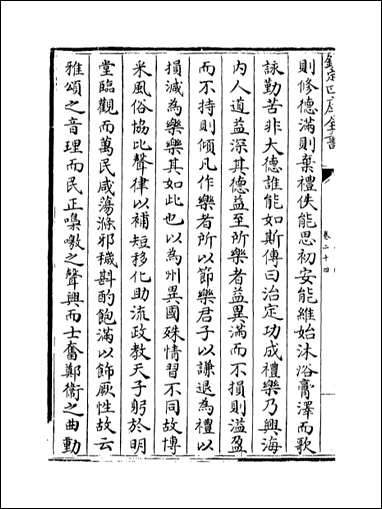 欽定四庫全書
卷二十四
則修德滿則棄禮佚能思初安能維始沐浴膏澤而歌
詠勤苦非大德誰能如斯傳曰治定功成禮樂乃興海
内人道益深其德益至所樂者益異滿而不損則溢盈
而不持則傾凡作樂者所以節樂君子以謙退為禮以
損減為樂樂其如此也以為州異國殊情習不同故博
米風俗協比聲律以補短移化助流政教天子躬於明
堂臨觀而萬民咸蕩滌邪穢斟酌飽滿以飾厥性故云
雅頌之音理而民正嘄噭之聲興而士奮鄭衛之曲動